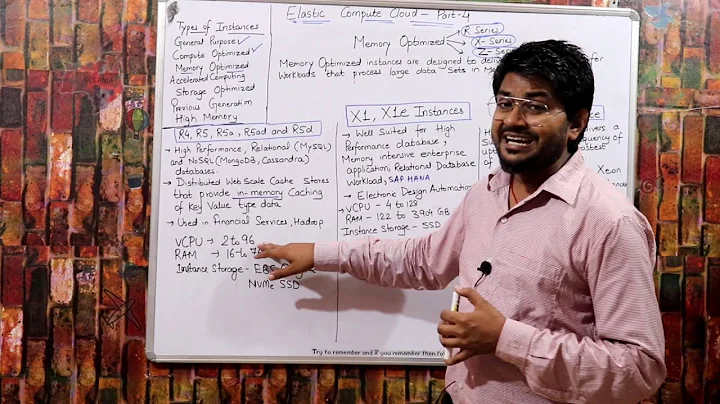 Elastic Compute Cloud - Part-4
Types of Instances
General Purpose ✓
Compute Optimized ✓
Memory Optimized
Accelerated Computing
Storage Optimized
Previous Generation
High Memory
Memory Optimized
R Series
X-Series
Z-Se
Memory Optimized instances are designed to deliver for
Workloads that process large data Sets in M
R4, R5, R5a, R5ad and R5d
→ High Performance, Relational (MySQL)
and NoSQL (MongoDB, Cassandra)
databases.
→ Distributed Web Scale Cache Stores
that provide in-memory Caching
of Key Value type data
→ Used in Financial Services, Hadoop
VCPU → 2 to 96
RAM → 16 to 7
Instance Storage - EBS
NVMe SSD
X1, X1e Instances
→ Well Suited for High
Performance database,
Memory intensive enterprise
application, Relational Database
Workload, SAP HANA
→ Electronic Design Automation
→ VCPU - 4 to 128
RAM - 122 to 3904 GB
Instance Storage - SSD
ce
delivers a
equency of
fastest
Xeon
Try to remember and if you remember then